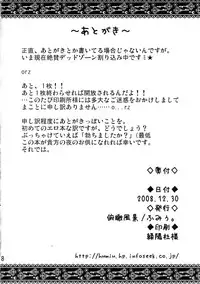 ～あとがき～
正直、あとがきとか書いてる場合じゃないんですが。
いま現在絶賛デッドゾーン割り込み中です！★
orz
あと、1枚！！
あと1枚終わらせれば開放されるんだよ！！
…このたび印刷所様には多大なご迷惑をおかけして
まことに申し訳ありません……o...rz
申し訳程度にあとがきっぽいことを。
初めてのエロ本な訳ですが、どうでしょう？
ぶっちゃけていえば「勃ちましたか？」(最低
この本が貴方の夜のお供になれば幸いです。
それでは、
◇書付◇
◆日付◆
2008.12.30
◇発行◇
俯瞰風景/ふみぅ。
◆印刷◆
緑陽社様
http://humim.hp.infoseek.co.jp/
8